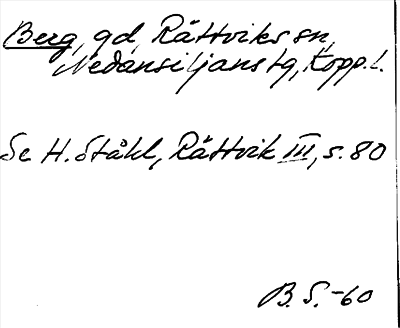 Berg, gd, Rättviks sn,
Nedansiljans tg, Kopp.l.
Se H. Ståhl, Rättvik III, s. 80
B. S. -60